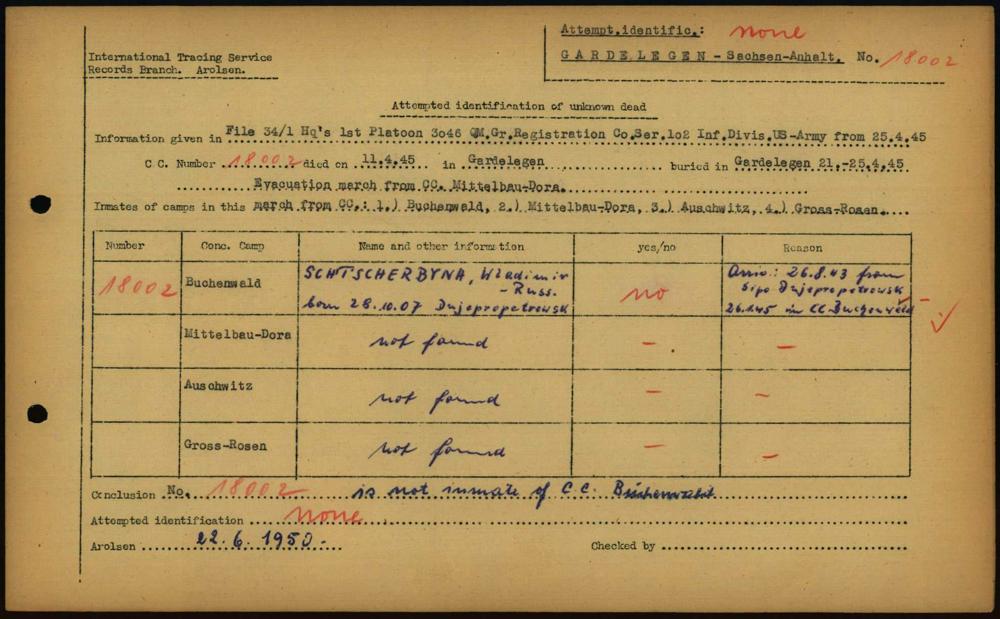 Attempt.identific.: none
International Tracing Service
Records Branch. Arolsen.
GARDELEGEN - Sachsen-Anhalt. No. 18002
Attempted identification of unknown dead
Information given in File 34/1 Hq's 1st Platoon 3o46 QM.Gr.Registration Co.Ser.1o2 Inf.Divis.US-Army from 25.4.45
C C. Number 18002 died on 11.4.45 in Gardelegen buried in Gardelegen 21.-25.4.45
Evacuation march from CC. Mittelbau-Dora.
Inmates of camps in this march from CC.: 1.) Buchenwald, 2.) Mittelbau-Dora, 3.) Auschwitz, 4.) Gross-Rosen.
Number Conc. Camp Name and other information yes/no Reason
18002 Buchenwald SCHTSCHERBYNA, Wladimir - Russ. born 28.10.07 Dnjepropetrowsk no Arriv.: 26.8.43 from Sipo Dnjepropetrowsk 26.1.45 in CC.Buchenwald
Mittelbau-Dora not found - -
Auschwitz not found - -
Gross-Rosen not found - -
Conclusion No. 18002 is not inmate of C.C. Buchenwald
Attempted identification none
Arolsen 22.6.1950.- Checked by